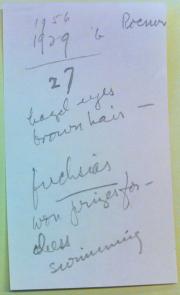 1956
1929
27
hazel eyes
brown hair —
fuchsias
won prizes for —
chess
swimming